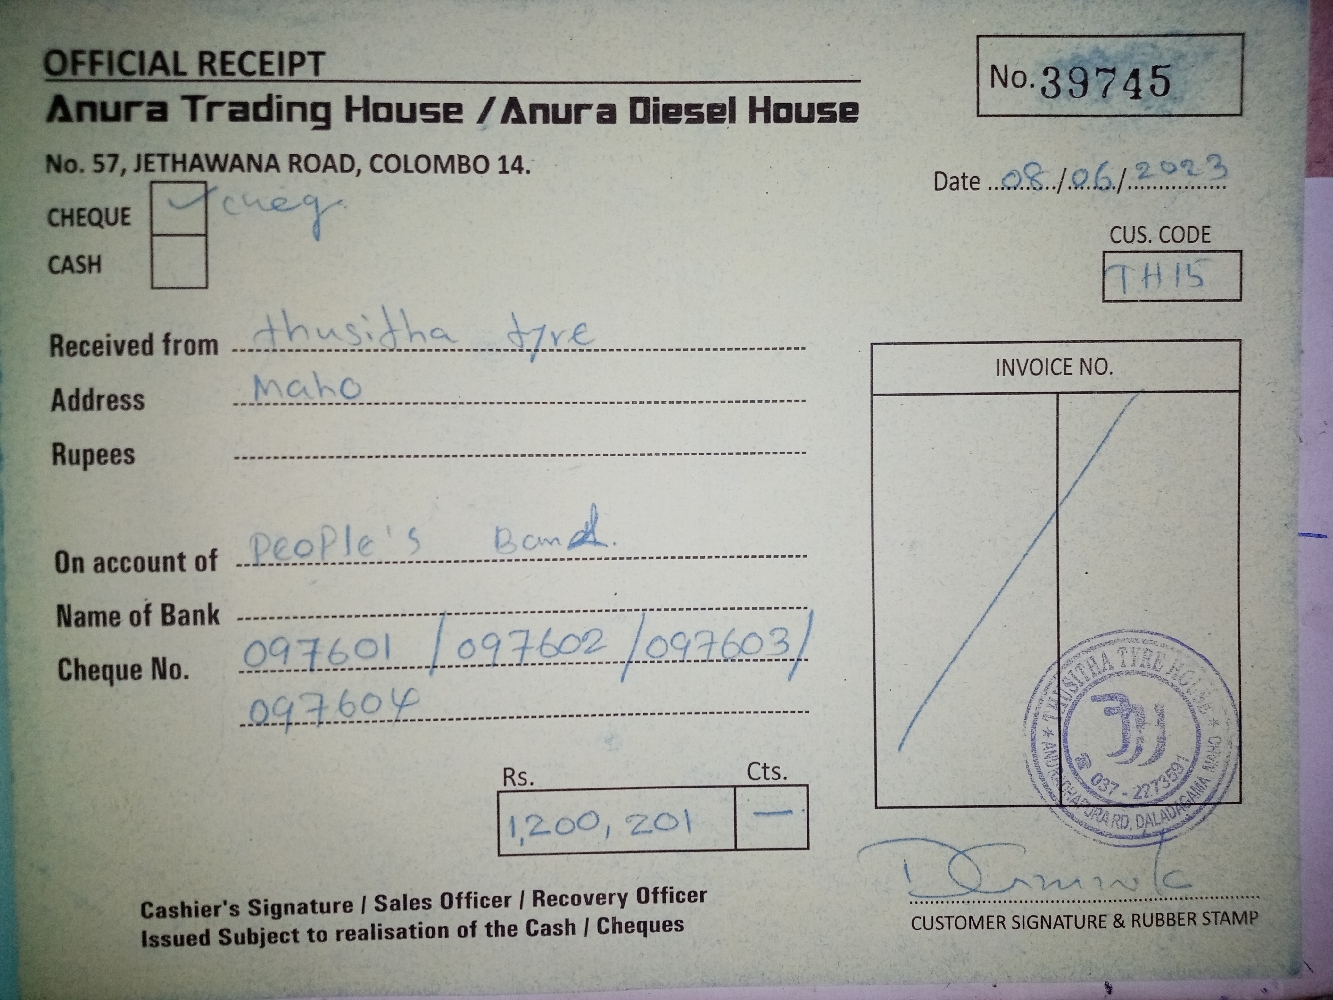 OFFICIAL RECEIPT
No. 39745
Anura Trading House / Anura Diesel House
No. 57, JETHAWANA ROAD, COLOMBO 14.
Date 08/06/2023
CHEQUE cheq.
CUS. CODE
CASH
TH15
Received from thusitha tyre
INVOICE NO.
Address Maho
Rupees
On account of People's
Name of Bank
Cheque No. 097601 / 097602 / 097603 /
097604
* THUSITHA TYRE HOUSE *
037 - 2273591
ANURADHAPURA RD, DALADAGAMA, MAHO
Rs. Cts.
1,200,201 —
Cashier's Signature / Sales Officer / Recovery Officer
Issued Subject to realisation of the Cash / Cheques
CUSTOMER SIGNATURE & RUBBER STAMP